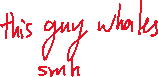 this guy whales
smh